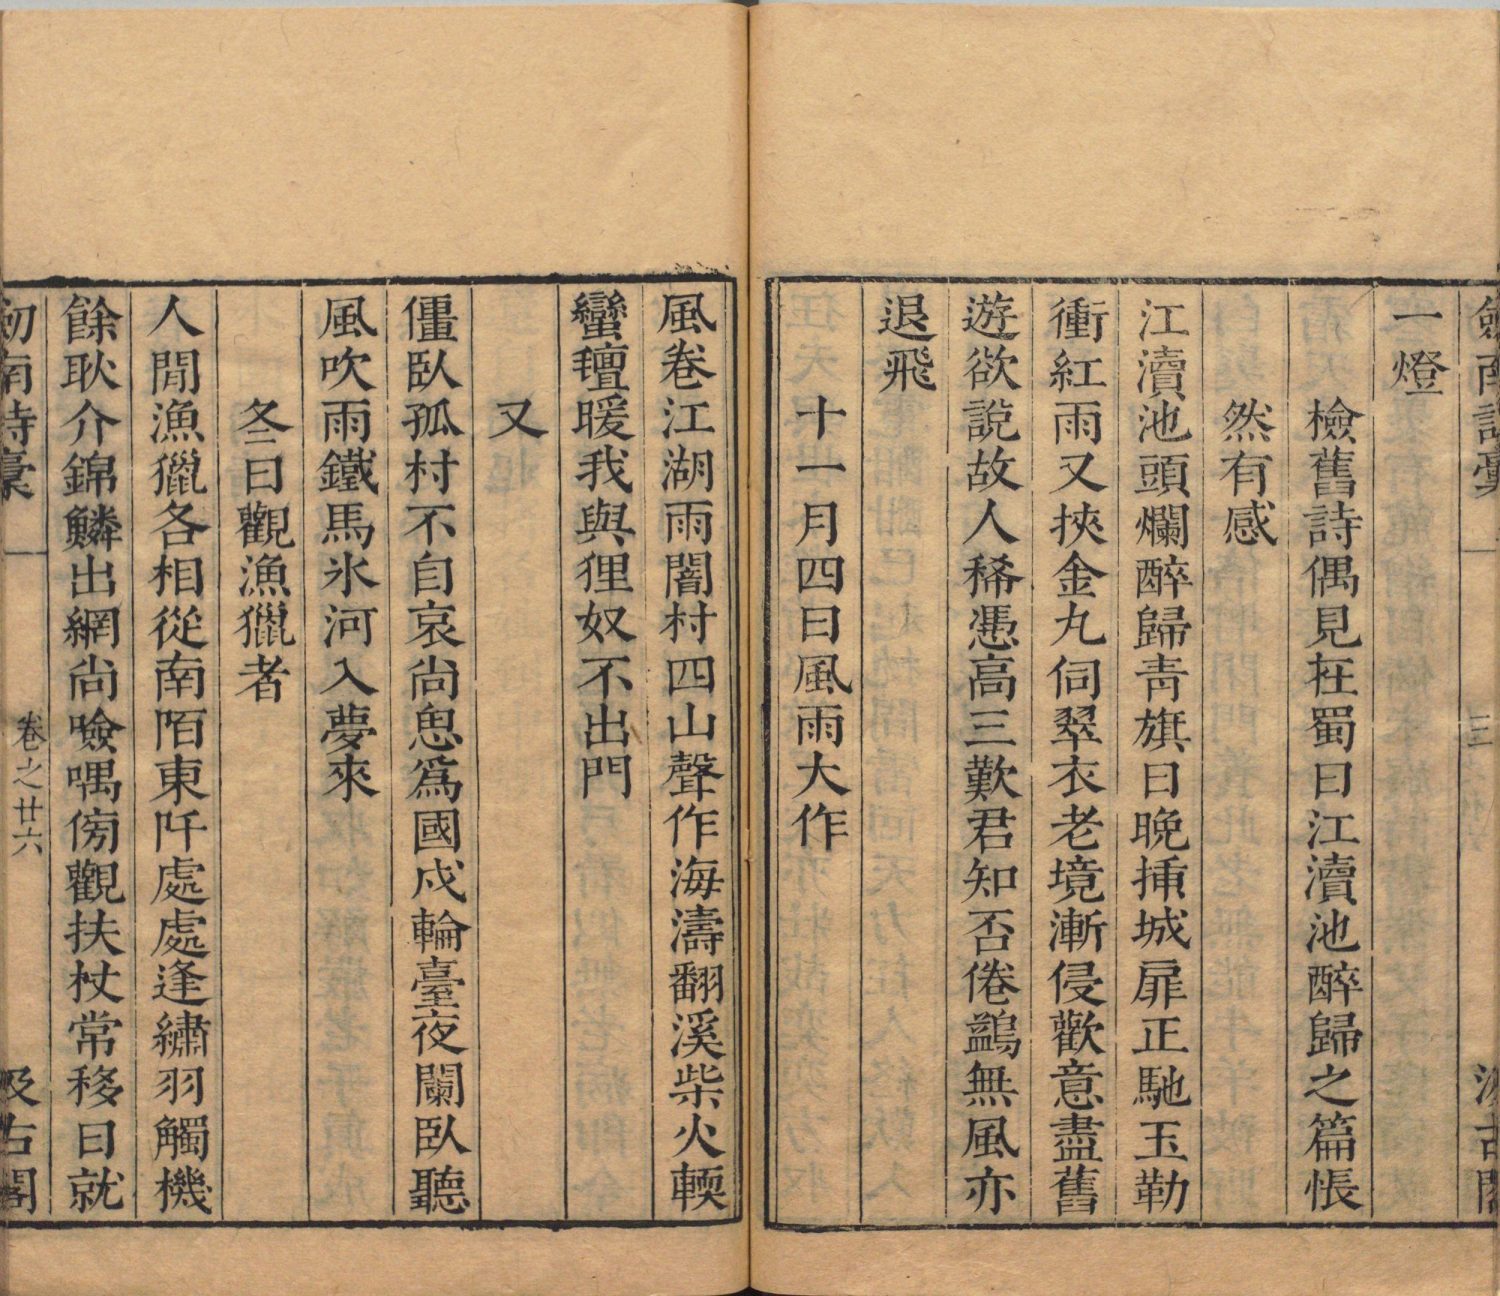 劒南詩稾 三 汲古閣
一燈
檢舊詩偶見在蜀日江瀆池醉歸之篇悵
然有感
江瀆池頭爛醉歸青旗日晚揷城扉正馳玉勒
衝紅雨又挾金丸伺翠衣老境漸侵歡意盡舊
遊欲說故人稀憑高三歎君知否倦鷁無風亦
退飛
十一月四日風雨大作
風卷江湖雨闇村四山聲作海濤翻溪柴火輭
蠻氊暖我與狸奴不出門
又
僵臥孤村不自哀尚思爲國戍輪臺夜闌臥聽
風吹雨鐵馬氷河入夢來
冬日觀漁獵者
人閒漁獵各相從南陌東阡處處逢繡羽觸機
餘耿介錦鱗出網尚噞喁傍觀扶杖常移日就
劒南詩稾 卷之廿六 汲古閣